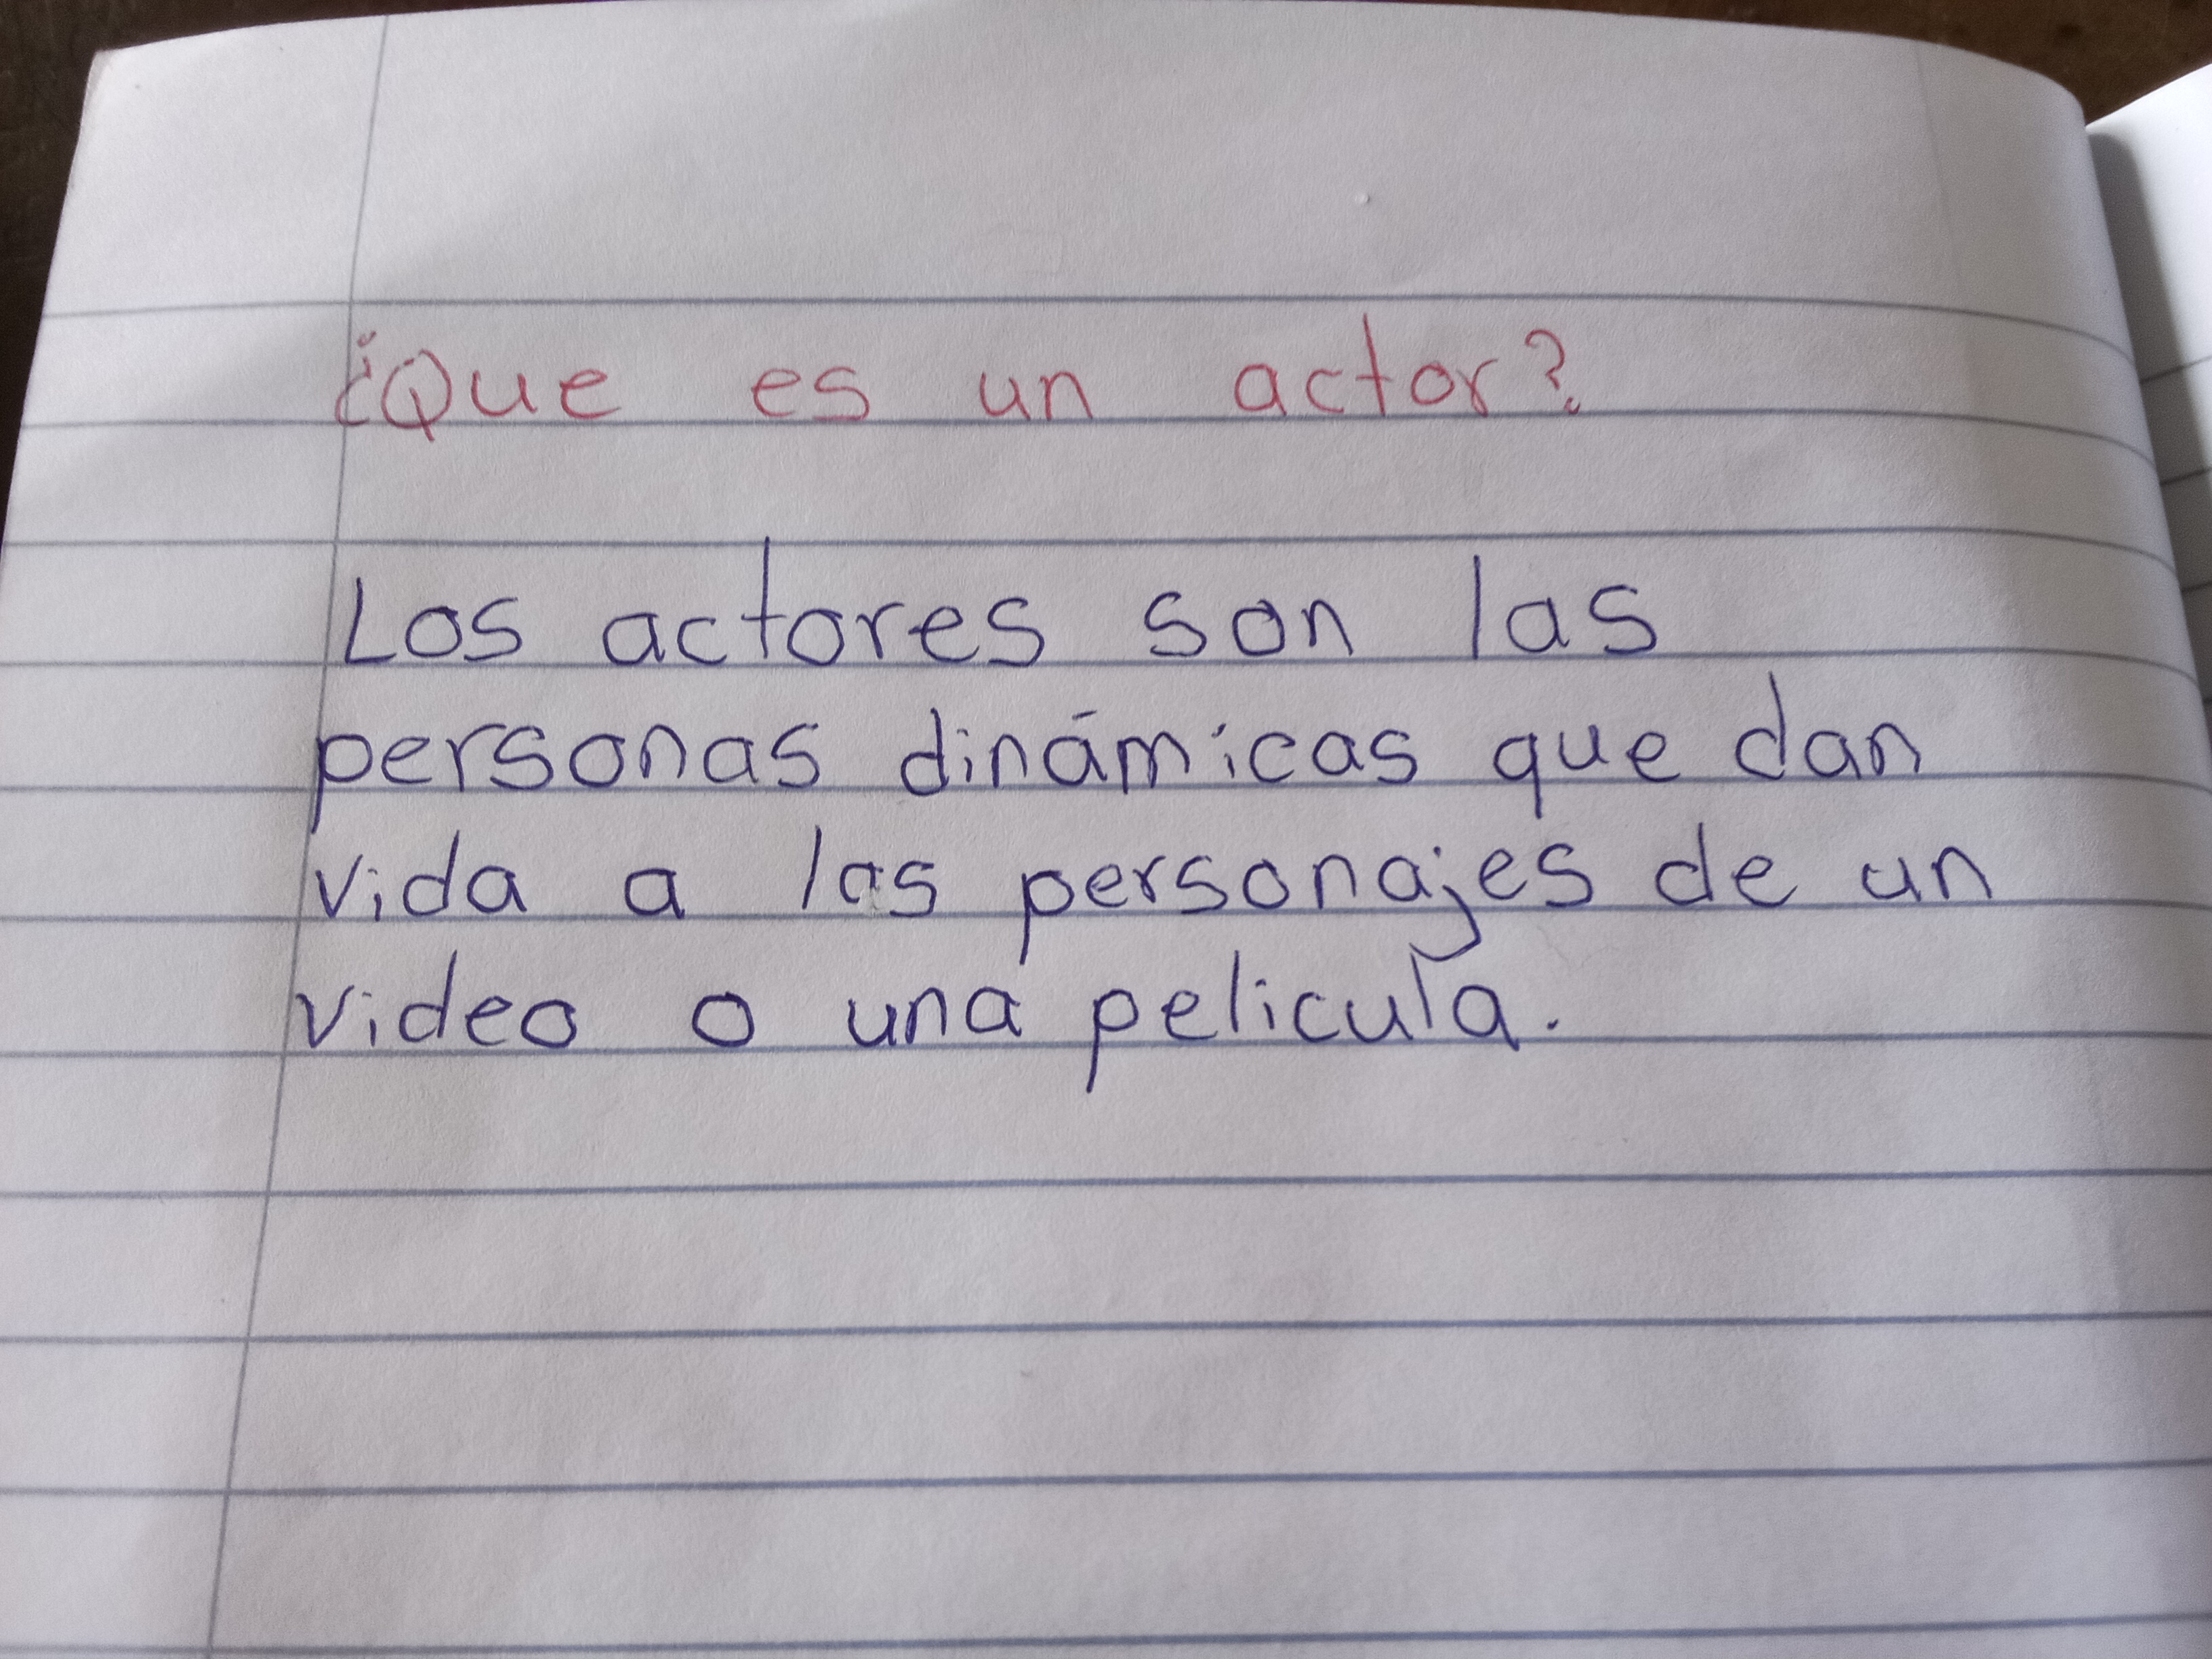 ¿Que es un actor?
Los actores son las
personas dinámicas que dan
vida a los personajes de un
video o una pelicula.